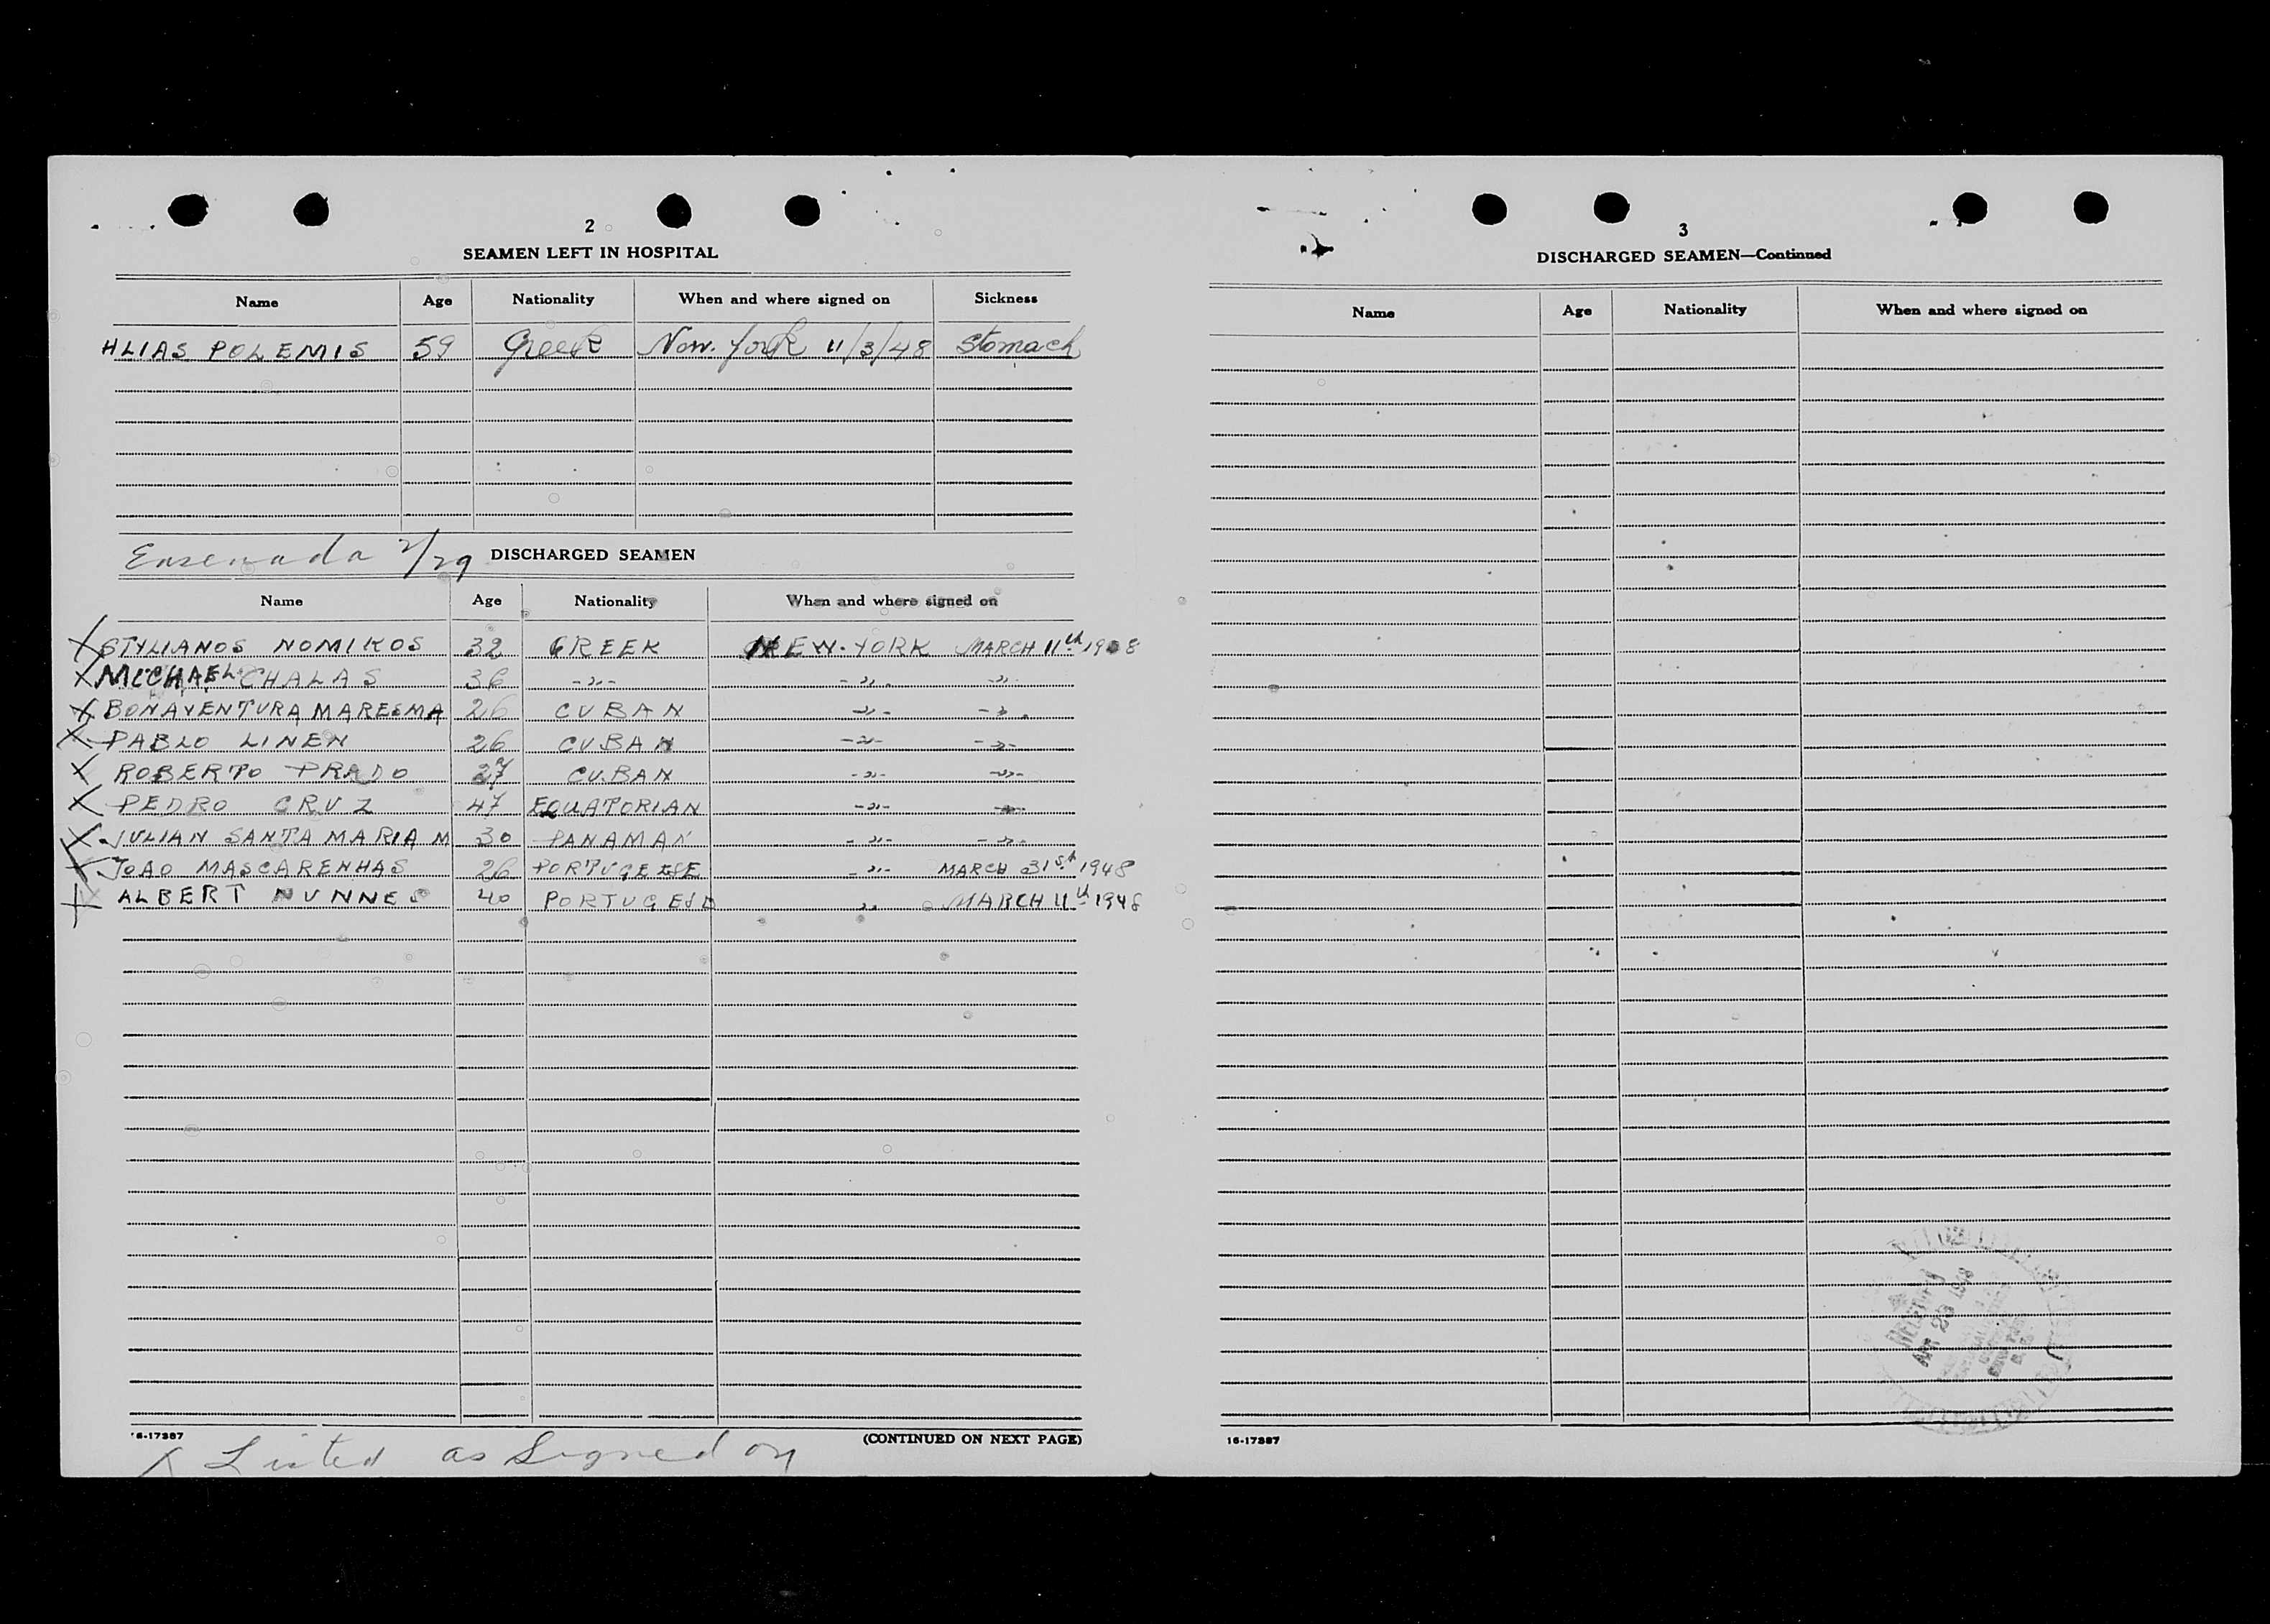 2
SEAMEN LEFT IN HOSPITAL
Name Age Nationality When and where signed on Sickness
HLIAS POLEMIS 59 Greek New. York 11/3/48 Stomach
Ensenada 2/29 DISCHARGED SEAMEN
Name Age Nationality When and where signed on
X STYLIANOS NOMIKOS 32 GREEK NEW. YORK MARCH 11th 1948
X MICHAEL CHALAS 36 -"- -"- -"-
X BONAVENTURA MARESMA 26 CUBAN -"- -"-
X PABLO LINEN 26 CUBAN -"- -"-
X ROBERTO PRADO 27 CUBAN -"- -"-
X PEDRO CRUZ 47 EQUATORIAN -"- -"-
X JULIAN SANTA MARIA M 30 PANAMAN -"- -"-
X JOAO MASCARENHAS 26 PORTUGEESE -"- MARCH 31st 1948
X ALBERT NUNNES 40 PORTUGESE " MARCH 11th 1948
16-17387 (CONTINUED ON NEXT PAGE)
X Listed as Signed on
3
DISCHARGED SEAMEN—Continued
Name Age Nationality When and where signed on
APR 1948
16-17387